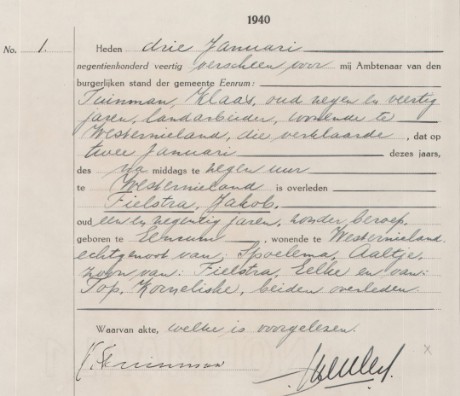 1940
No. 1. Heden drie Januari
negentienhonderd veertig verscheen voor mij Ambtenaar van den
burgerlijken stand der gemeente Eenrum:
Tuinman, Klaas, oud negen en veertig
jaren, landarbeider, wonende te
Westernieland, die verklaarde, dat op
twee Januari dezes jaars,
des na middags te negen uur
te Westernieland is overleden
Fielstra, Jakob,
oud een en negentig jaren, zonder beroep,
geboren te Eenrum, wonende te Westernieland,
echtgenoot van: Spoelema, Aaltje,
zoon van: Fielstra, Eelke en van:
Top, Korneliske, beiden overleden.
Waarvan akte, welke is voorgelezen.
K Tuinman